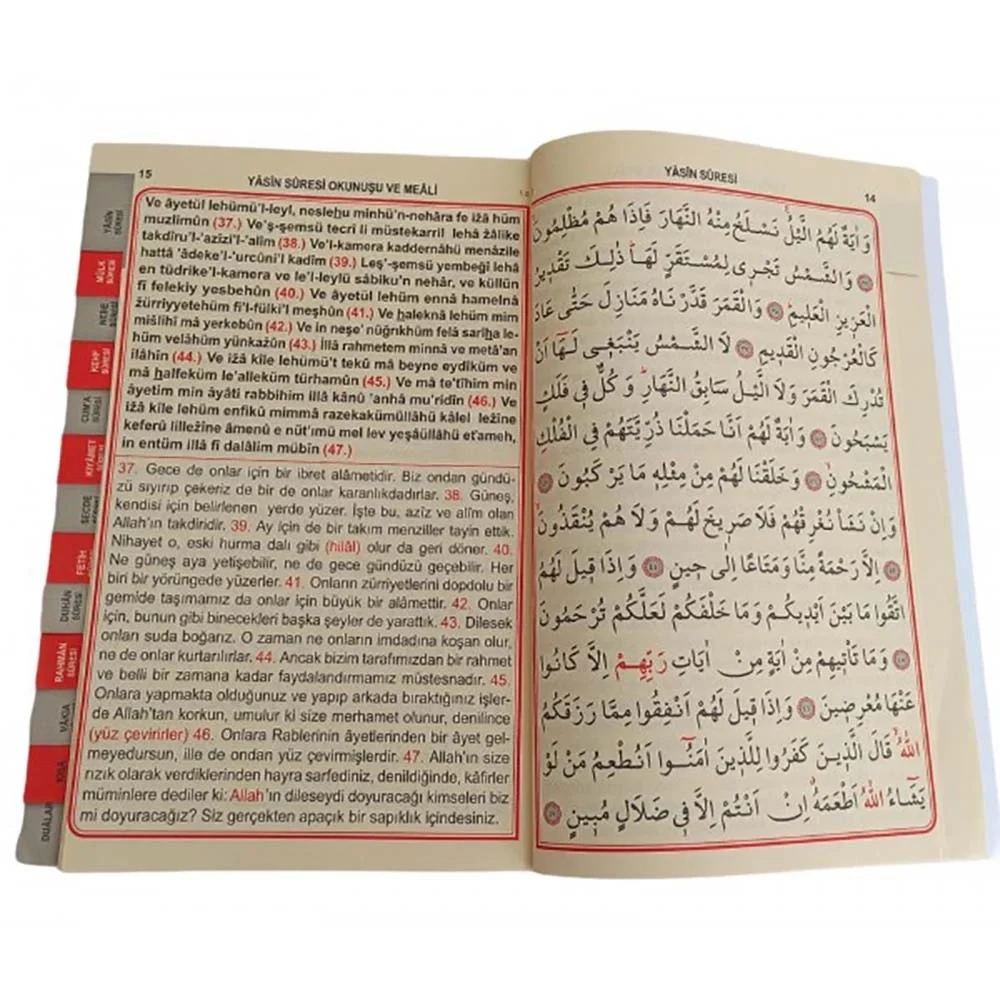 15
YÂSİN SÛRESİ OKUNUŞU VE MEÂLİ
Ve âyetül lehümü'l-leyl, neslehu minhü'n-nehâra fe iżâ hüm
muzlimûn (37.) Ve'ş-şemsü tecrî li müstekarril lehâ żâlike
takdîru'l-'azîzi'l-'alîm (38.) Ve'l-kamera kaddernâhü menâzile
hattâ 'âdeke'l-'urcûni'l kadîm (39.) Leş'-şemsü yembeğî lehâ
en tüdrike'l-kamera ve le'l-leylü sâbiku'n nehâr, ve küllün
fî felekiy yesbehûn (40.) Ve âyetül lehüm ennâ hamelnâ
żürriyyetehüm fi'l-fülki'l meşhûn (41.) Ve haleknâ lehüm mim
mišlihî mâ yerkebûn (42.) Ve in neşe' nüğrıkhüm felâ sarîha le-
hüm velâhüm yünkażûn (43.) İllâ rahmetem minnâ ve metâ'an
ilâhîn (44.) Ve iżâ kîle lehümü't tekû mâ beyne eydîküm ve
mâ halfeküm le'alleküm türhamûn (45.) Ve mâ te'tîhim min
âyetim min âyâti rabbihim illâ kânû 'anhâ mu'ridîn (46.) Ve
iżâ kîle lehüm enfikû mimmâ razekakümüllâhü kâlel leżîne
keferû lilleżîne âmenû e nüt'ımü mel lev yeşâüllâhü et'ameh,
in entüm illâ fî dalâlim mübîn (47.)
37. Gece de onlar için bir ibret alâmetidir. Biz ondan gündü-
zü sıyırıp çekeriz de bir de onlar karanlıkdadırlar. 38. Güneş,
kendisi için belirlenen yerde yüzer. İşte bu, azîz ve alîm olan
Allah'ın takdiridir. 39. Ay için de bir takım menziller tayin ettik.
Nihayet o, eski hurma dalı gibi (hilâl) olur da geri döner. 40.
Ne güneş aya yetişebilir, ne de gece gündüzü geçebilir. Her
biri bir yörüngede yüzerler. 41. Onların zürriyetlerini dopdolu bir
gemide taşımamız da onlar için büyük bir alâmettir. 42. Onlar
için, bunun gibi binecekleri başka şeyler de yarattık. 43. Dilesek
onları suda boğarız. O zaman ne onların imdadına koşan olur,
ne de onlar kurtarılırlar. 44. Ancak bizim tarafımızdan bir rahmet
ve belli bir zamana kadar faydalandırmamız müstesnadır. 45.
Onlara yapmakta olduğunuz ve yapıp arkada bıraktığınız işler-
de Allah'tan korkun, umulur ki size merhamet olunur, denilince
(yüz çevirirler) 46. Onlara Rablerinin âyetlerinden bir âyet gel-
meyedursun, ille de ondan yüz çevirmişlerdir. 47. Allah'ın size
rızık olarak verdiklerinden hayra sarfediniz, denildiğinde, kâfirler
müminlere dediler ki: Allah'ın dileseydi doyuracağı kimseleri biz
mi doyuracağız? Siz gerçekten apaçık bir sapıklık içindesiniz.
YÂSİN SÛRESİ
MÜLK SÛRESİ
NEBE SÛRESİ
KEHF SÛRESİ
CUM'A SÛRESİ
KIYÂMET
SECDE
FETİH
DUHÂN SÛRESİ
RAHMÂN SÛRESİ
VÂKIA
DUÂLAR
YÂSÎN SÛRESİ
14
وَاٰيَةٌ لَهُمُ الَّيْلُۚ نَسْلَخُ مِنْهُ النَّهَارَ فَاِذَا هُمْ مُظْلِمُونَۙ
وَالشَّمْسُ تَجْر۪ى لِمُسْتَقَرٍّ لَهَاۜ ذٰلِكَ تَقْد۪يرُ
الْعَز۪يزِ الْعَل۪يمِۜ وَالْقَمَرَ قَدَّرْنَاهُ مَنَازِلَ حَتّٰى عَادَ
كَالْعُرْجُونِ الْقَد۪يمِ لَا الشَّمْسُ يَنْبَغ۪ى لَهَٓا اَنْ
تُدْرِكَ الْقَمَرَ وَلَا الَّيْلُ سَابِقُ النَّهَارِۜ وَكُلٌّ ف۪ى فَلَكٍ
يَسْبَحُونَ وَاٰيَةٌ لَهُمْ اَنَّا حَمَلْنَا ذُرِّيَّتَهُمْ فِى الْفُلْكِ
الْمَشْحُونِۙ وَخَلَقْنَا لَهُمْ مِنْ مِثْلِه۪ مَا يَرْكَبُونَ
وَاِنْ نَشَأْ نُغْرِقْهُمْ فَلَا صَر۪يخَ لَهُمْ وَلَا هُمْ يُنْقَذُونَۙ
اِلَّا رَحْمَةً مِنَّا وَمَتَاعًا اِلٰى ح۪ينٍ وَاِذَا ق۪يلَ لَهُمُ
اتَّقُوا مَا بَيْنَ اَيْد۪يكُمْ وَمَا خَلْفَكُمْ لَعَلَّكُمْ تُرْحَمُونَ
وَمَا تَأْت۪يهِمْ مِنْ اٰيَةٍ مِنْ اٰيَاتِ رَبِّهِمْ اِلَّا كَانُوا
عَنْهَا مُعْرِض۪ينَ وَاِذَا ق۪يلَ لَهُمْ اَنْفِقُوا مِمَّا رَزَقَكُمُ
اللّٰهُۙ قَالَ الَّذ۪ينَ كَفَرُوا لِلَّذ۪ينَ اٰمَنُٓوا اَنُطْعِمُ مَنْ لَوْ
يَشَٓاءُ اللّٰهُ اَطْعَمَهُۗ اِنْ اَنْتُمْ اِلَّا ف۪ى ضَلَالٍ مُب۪ينٍ